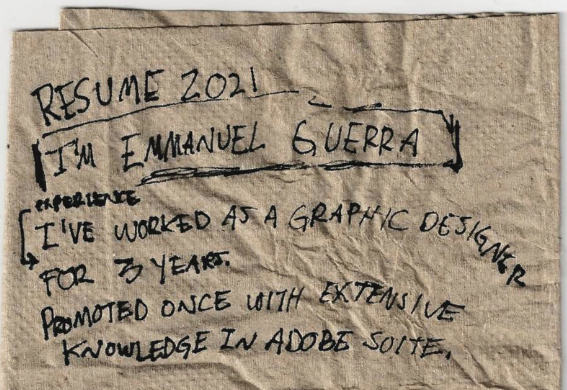 RESUME 2021
I'M EMMANUEL GUERRA
EXPERIENCE
I'VE WORKED AS A GRAPHIC DESIGNER
FOR 3 YEARS.
PROMOTED ONCE WITH EXTENSIVE
KNOWLEDGE IN ADOBE SUITE.